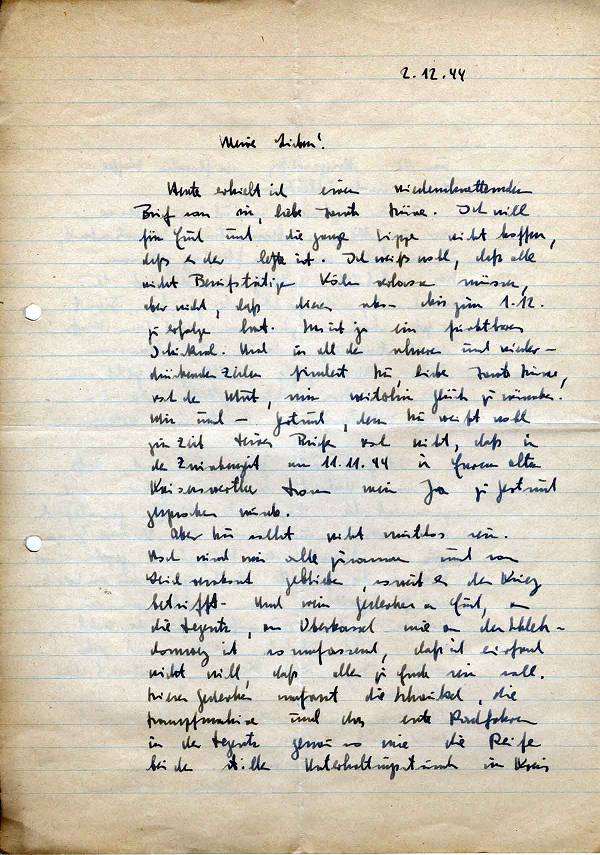 2.12.44
Meine Lieben!
Heute erhielt ich einen niederschmetternden
Brief von Dir, liebe Tante Mine. Ich will
für Euch und die ganze Sippe nicht hoffen,
daß er der letzte ist. Ich weiß wohl, daß alle
nicht Berufstätigen Köln verlassen müssen,
aber nicht, daß dieses bis zum 1.12.
zu erfolgen hat. ja ein furchtbares
Schicksal. Und in all den schweren und nieder-
drückenden Zeilen findest Du, liebe Tante Mine,
noch den Mut, mir weiterhin Glück zu wünschen.
Mir und — Gertrud, denn Du weißt wohl
zur Zeit Deines Briefes noch nicht, daß in
der Zwischenzeit am 11.11.44 in Eurem alten
Kaiserswerther mein Ja zu Gertrud
gesprochen wurde.
Aber Du sollst nicht mutlos sein.
Noch sind wir alle zusammen und von
Leid verschont geblieben, soweit es den Krieg
betrifft. Und mein Gedenken an Euch, an
die an Oberkassel wie an den
ist so umfassend, daß ich einfach
nicht will, daß alles zu Ende sein soll.
Dieses Gedenken umfasst die Schaukel, die
Dampfmaschine und das erste Radfahren
in der genau so wie die Reife
bei den stillen im Kreis